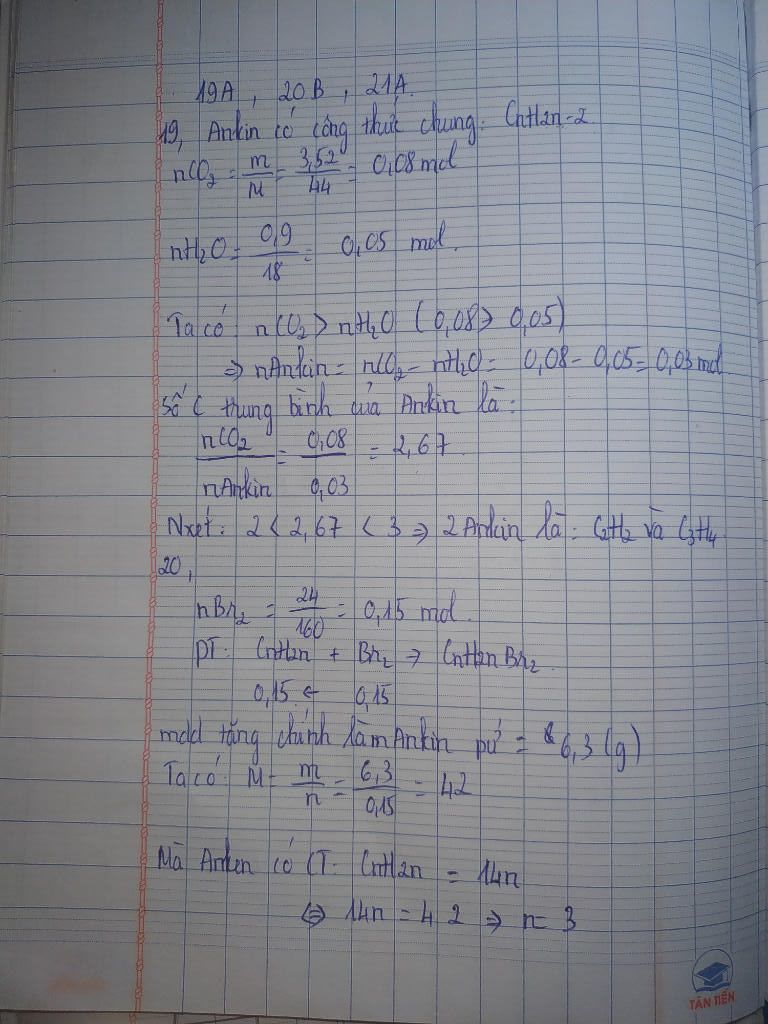 19A, 20B, 21A.
19, Ankin có công thức chung: CnH2n-2
nCO2 = m/M = 3,52/44 = 0,08 mol
nH2O = 0,9/18 = 0,05 mol.
Ta có: nCO2 > nH2O (0,08 > 0,05)
⇒ nAnkin = nCO2 - nH2O = 0,08 - 0,05 = 0,03 mol
Số C trung bình của Ankin là:
nCO2/nAnkin = 0,08/0,03 = 2,67.
Nxét: 2 < 2,67 < 3 ⇒ 2 Ankin là: C2H2 và C3H4
20,
nBr2 = 24/160 = 0,15 mol.
PT: CnH2n + Br2 → CnH2nBr2
0,15 ← 0,15
mdd tăng chính là mAnkin pứ = 6,3 (g)
Ta có: M = m/n = 6,3/0,15 = 42
Mà Anken có CT: CnH2n = 14n
⇔ 14n = 42 ⇒ n = 3
TÂN TIẾN